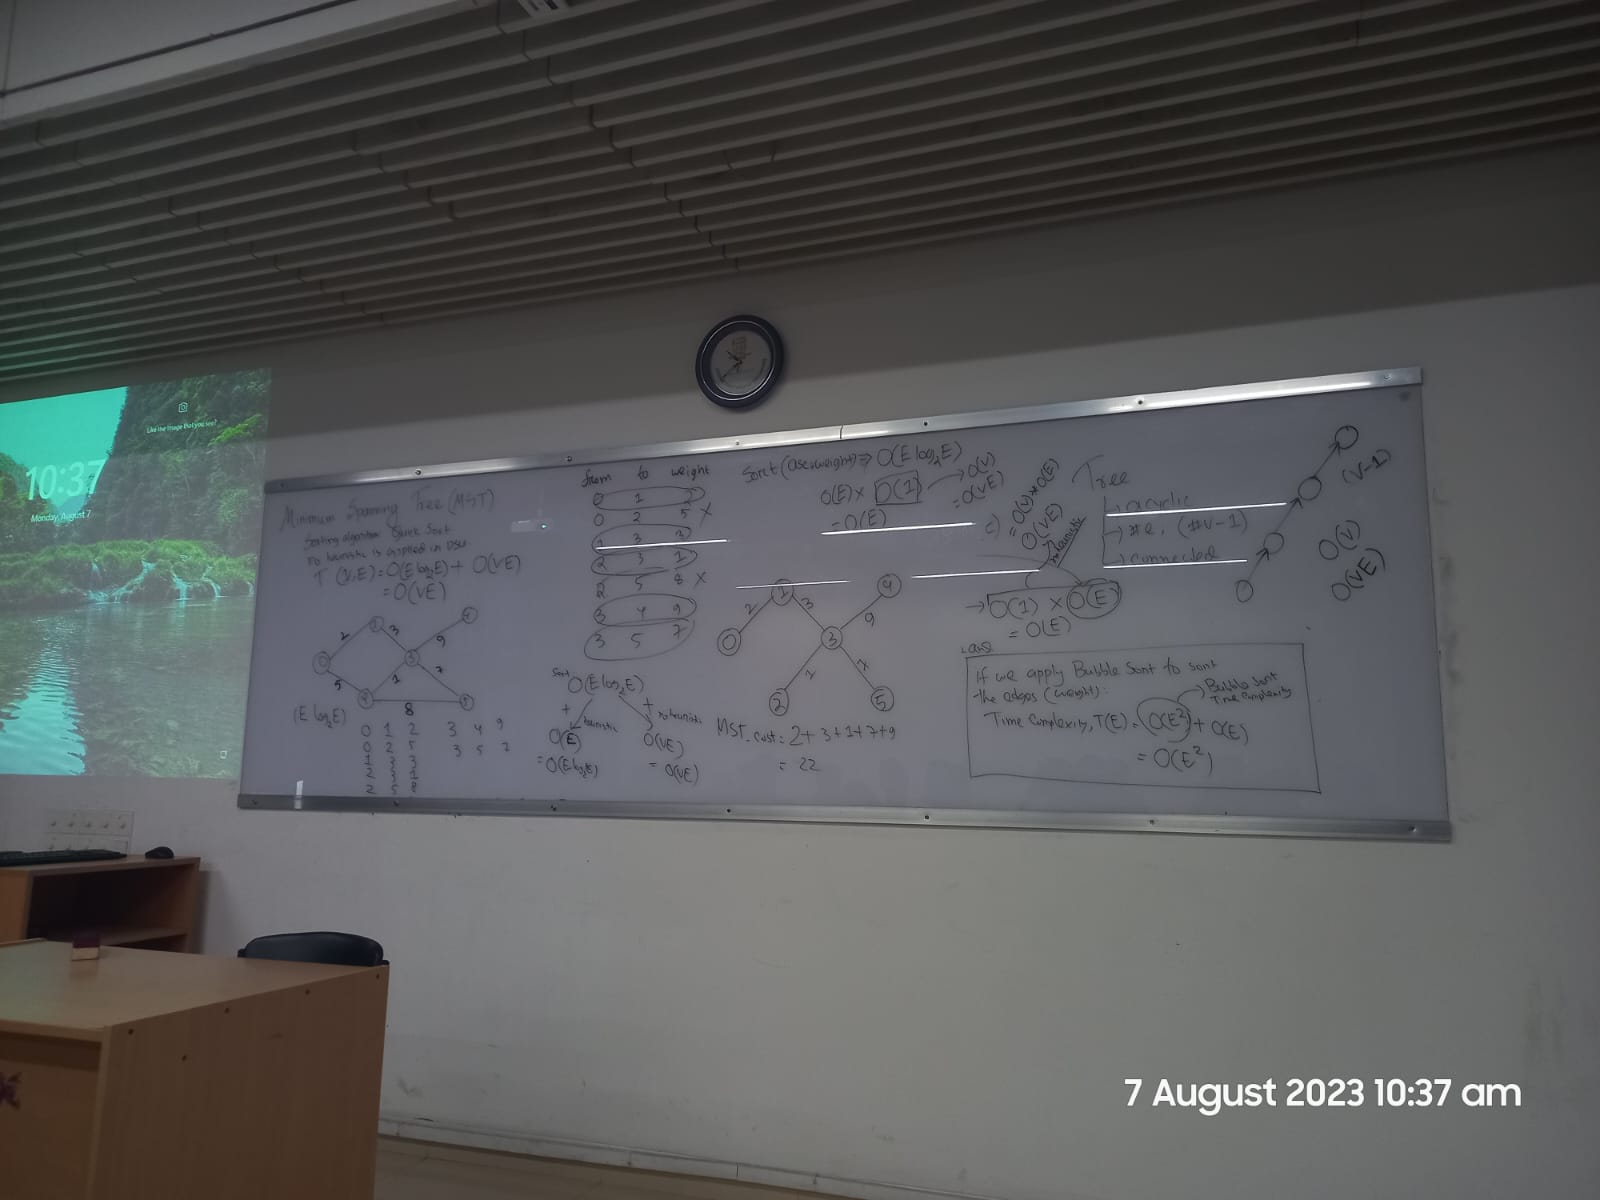 Like the image that you see?
10:37
Monday, August 7
Minimum Spanning Tree (MST)
Sorting algorithm: Quick Sort
No heuristic is applied in DSU
T (V,E) = O(E log₂E) + O(VE)
= O(VE)
0
1
2
3
4
5
2
3
9
5
1
7
8
(E log₂E)
0 1 2
0 2 5
1 3 3
2 3 1
2 5 8
3 4 9
3 5 7
from to weight
0 1 2
0 2 5 X
1 3 3
2 3 1
2 5 8 X
3 4 9
3 5 7
Sort
O(E log₂E)
+ heuristic
O(E)
= O(E log₂E)
+ no heuristic
O(VE)
= O(VE)
Sort (asc, weight) ⇒ O(E log₂E)
O(E) × O(1) → O(V)
= O(E)
= O(VE)
0
1
2
3
4
5
2
3
9
1
7
MST. cost: 2+3+1+7+9
= 22
= O(V) × O(E)
O(VE)
no heuristic
→ O(1) × O(E)
= O(E)
Tree
→ acyclic
→ #e, (#v-1)
→ connected
(V-1)
O(V)
O(VE)
ans
If we apply Bubble Sort to sort
the edges (weight):
Time Complexity, T(E) = O(E²) + O(E)
→ Bubble Sort
Time Complexity
= O(E²)
7 August 2023 10:37 am